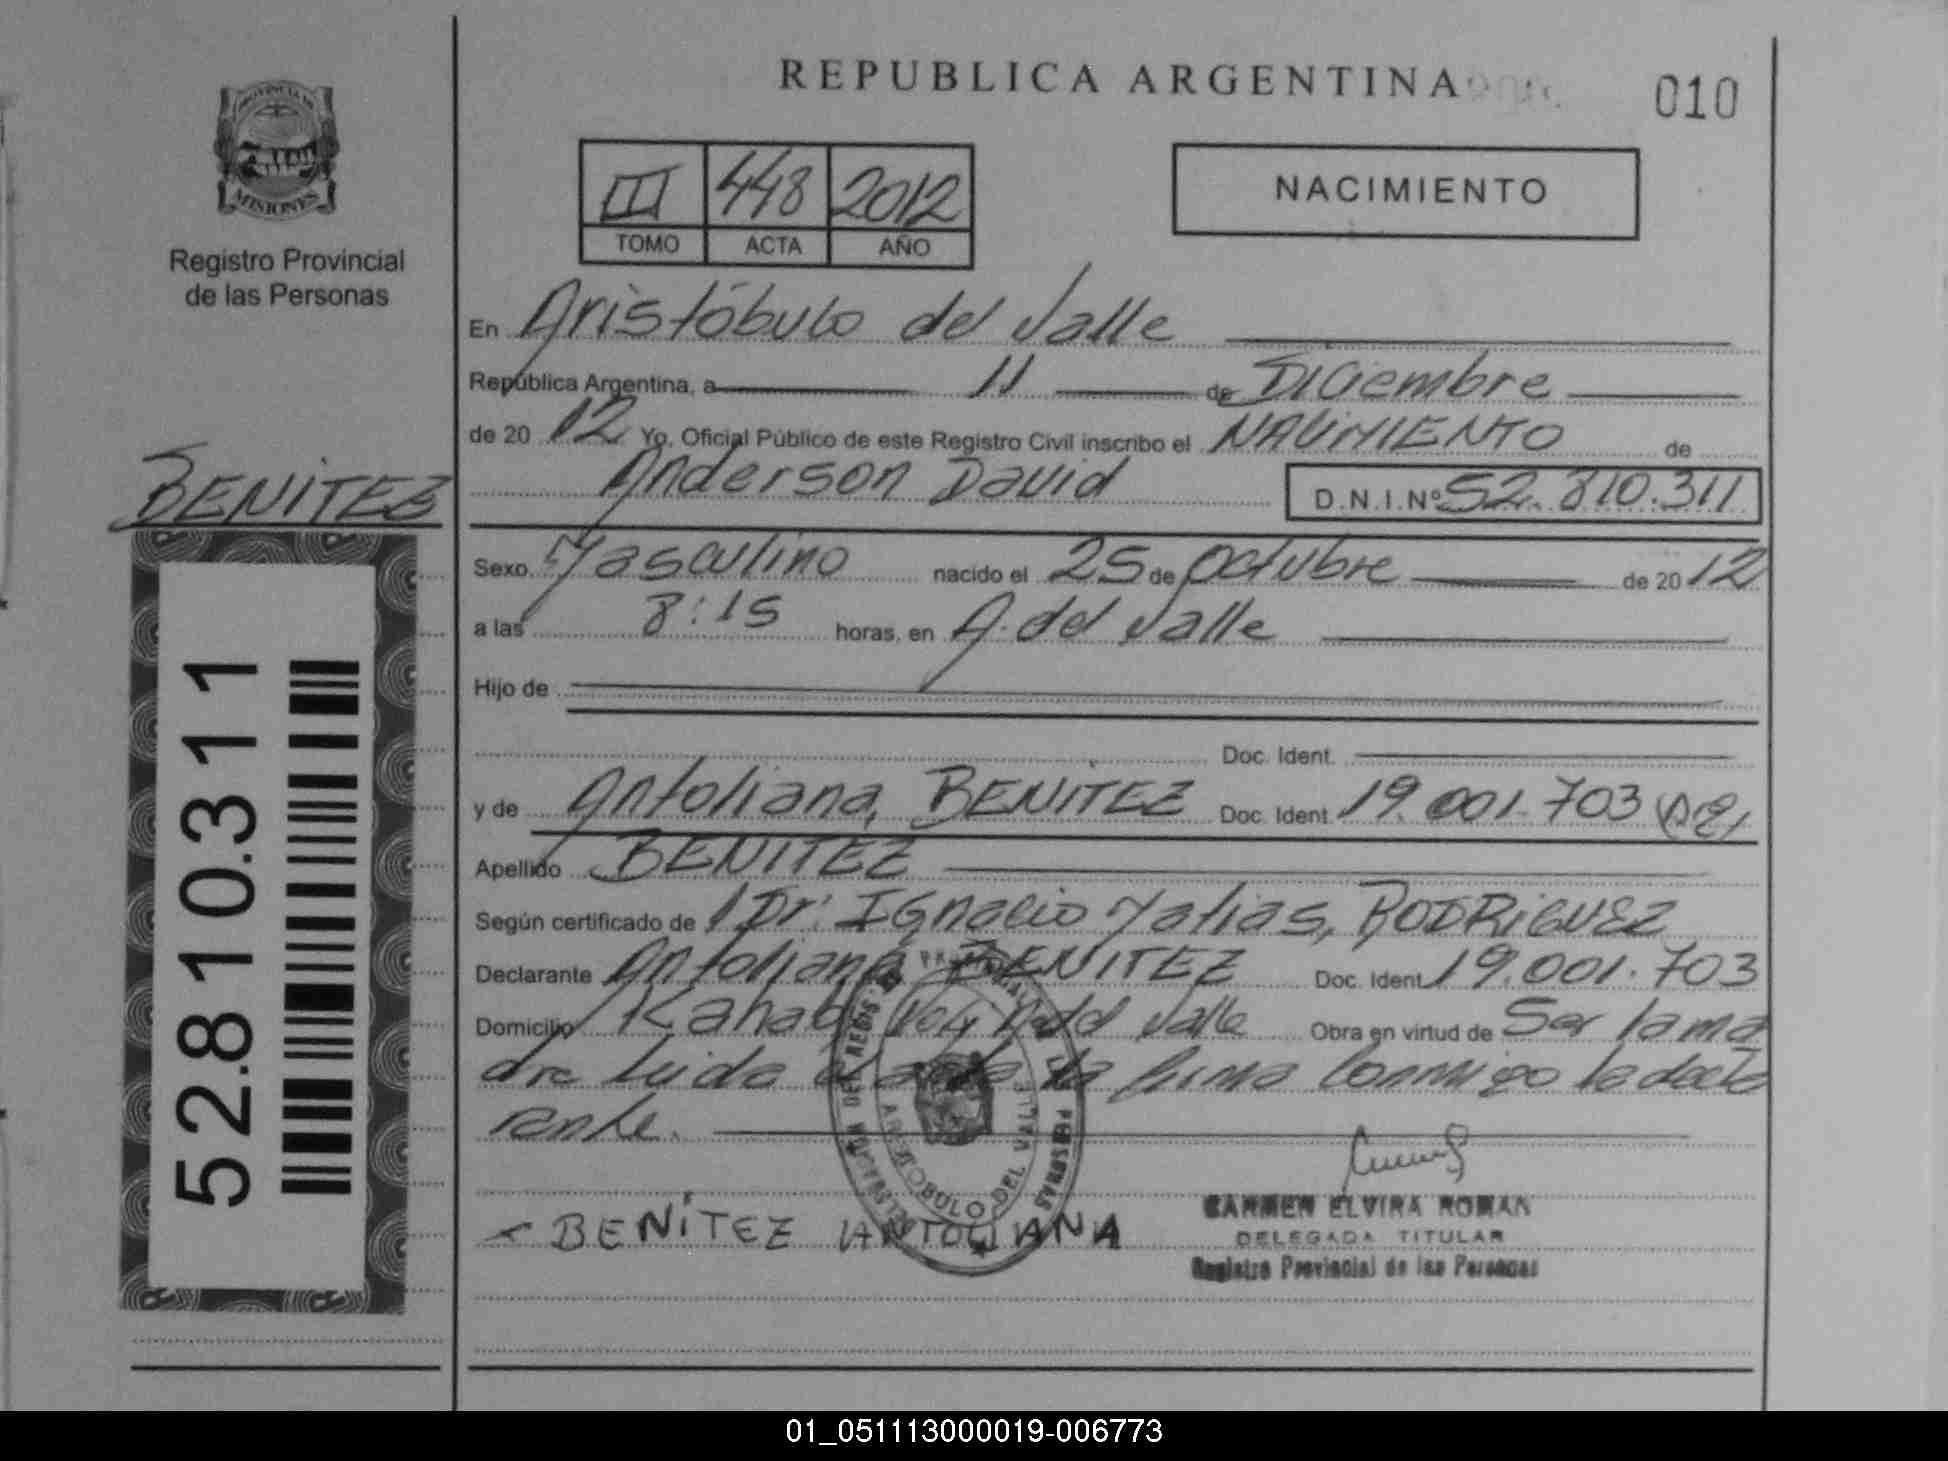 REPUBLICA ARGENTINA
010
PROVINCIA DE
MISIONES
Registro Provincial
de las Personas
III 448 2012
TOMO ACTA AÑO
NACIMIENTO
En Aristóbulo del Valle
República Argentina, a 11 de Diciembre
de 20 12 Yo, Oficial Público de este Registro Civil inscribo el NACIMIENTO de
Anderson David D.N.I.Nº 52.810.311
BENITEZ
52.810.311
Sexo Masculino nacido el 25 de octubre de 20 12
a las 8:15 horas, en A. del Valle
Hijo de
Doc. Ident.
y de Antoliana, BENITEZ Doc. Ident. 19.001.703
Apellido BENITEZ
Según certificado de Dr: Ignacio Matias, RODRIGUEZ
Declarante Antoliana BENITEZ Doc. Ident. 19.001.703
Domicilio del Valle Obra en virtud de Ser la ma
dre Leida el acta la firma conmigo la decla
rante.
ARISTOBULO DEL VALLE
BENITEZ ANTOLIANA
CARMEN ELVIRA ROMAN
DELEGADA TITULAR
Registro Provincial de las Personas
01_051113000019-006773